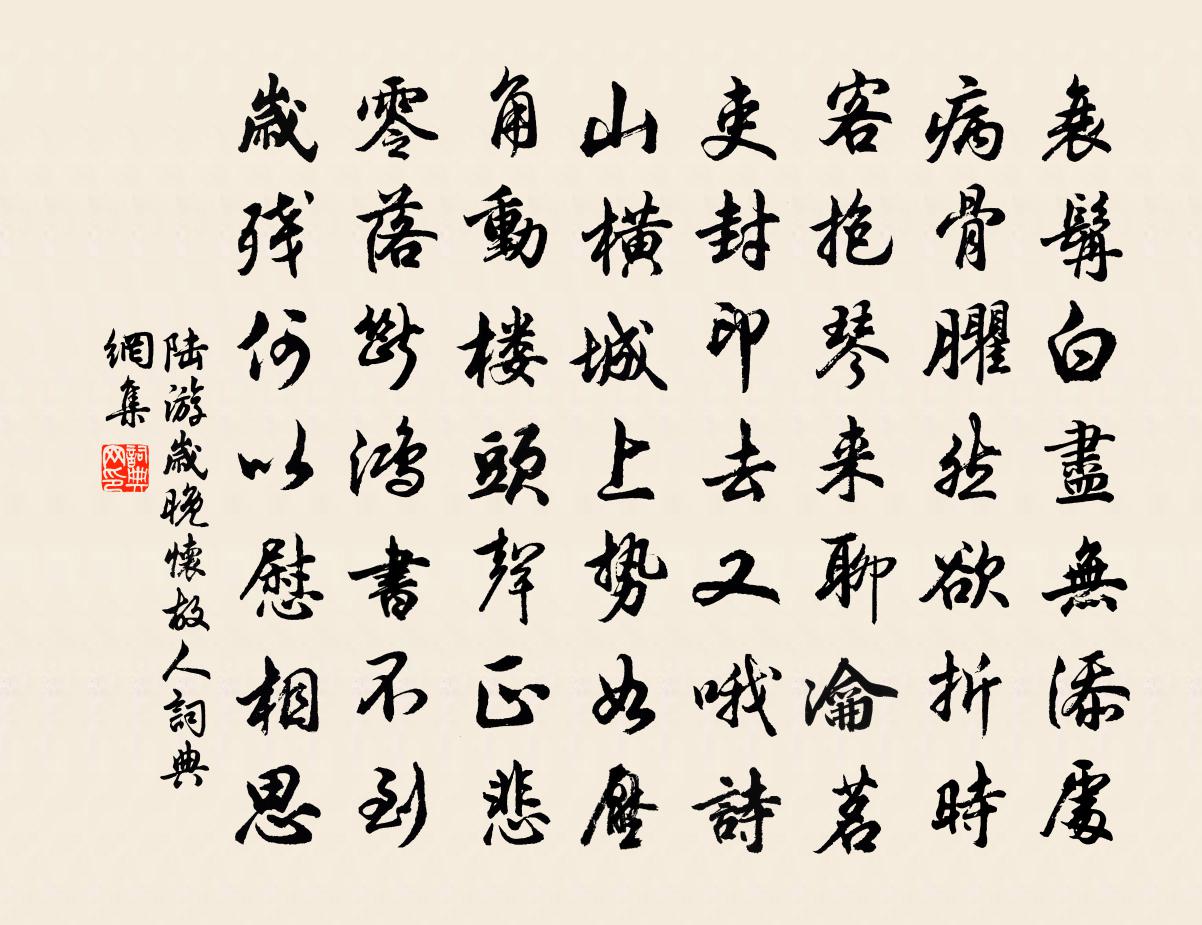 衰鬢白盡無添處
病骨臞然欲折時
客抱琴来聊瀹茗
吏封印去又哦詩
山横城上勢如壓
角動楼頭聲正悲
零落斷鴻書不到
歳残何以慰相思
陆游歳晚懷故人詞典
網集
詞典网印